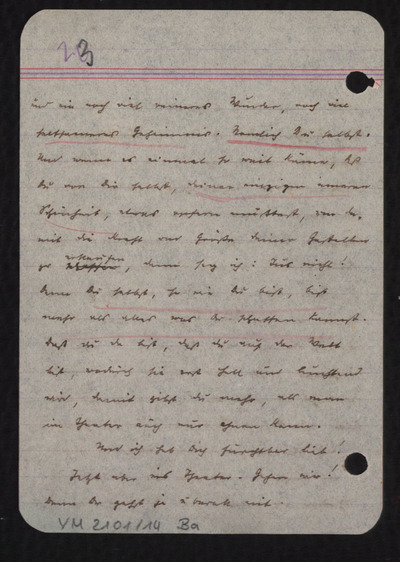 23
ist ein noch viel reineres Wunder, noch viel
seltsameres Geheimnis. Nämlich Du selbst.
Und wenn es einmal so weit käme, daß
Du von Dir selbst, deiner einzigen inneren
Schönheit, etwas opfern müßtest, um da-
mit die Kraft und Größe deiner Gestalten
zu erkaufen, dann sag ich: Tus nicht!
Denn Du selbst, so wie Du bist, bist
mehr als alles was du schaffen kannst.
Daß du da bist, daß du auf der Welt
bist, wodurch sie erst hell und leuchtend
wird, damit gibst du mehr, als man
im Theater auch nur ahnen kann.
Und ich hab Dich furchtbar lieb!
Jetzt aber ins Theater. Gehen wir!
denn Du gehst ja überall mit.
VM 2101/14 Ba